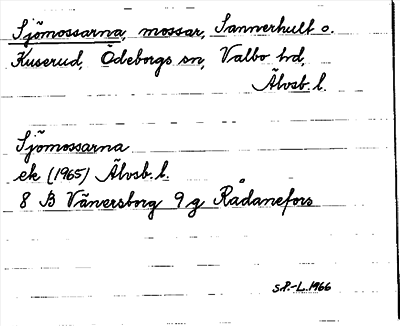 Sjömossarna, mossar, Sannerhult o.
Kuserud, Ödeborgs sn, Valbo hd,
Älvsb. l.
Sjömossarna
ek (1965) Älvsb. l.
8 B Vänersborg 9 g Rådanefors
S.P.-L. 1966